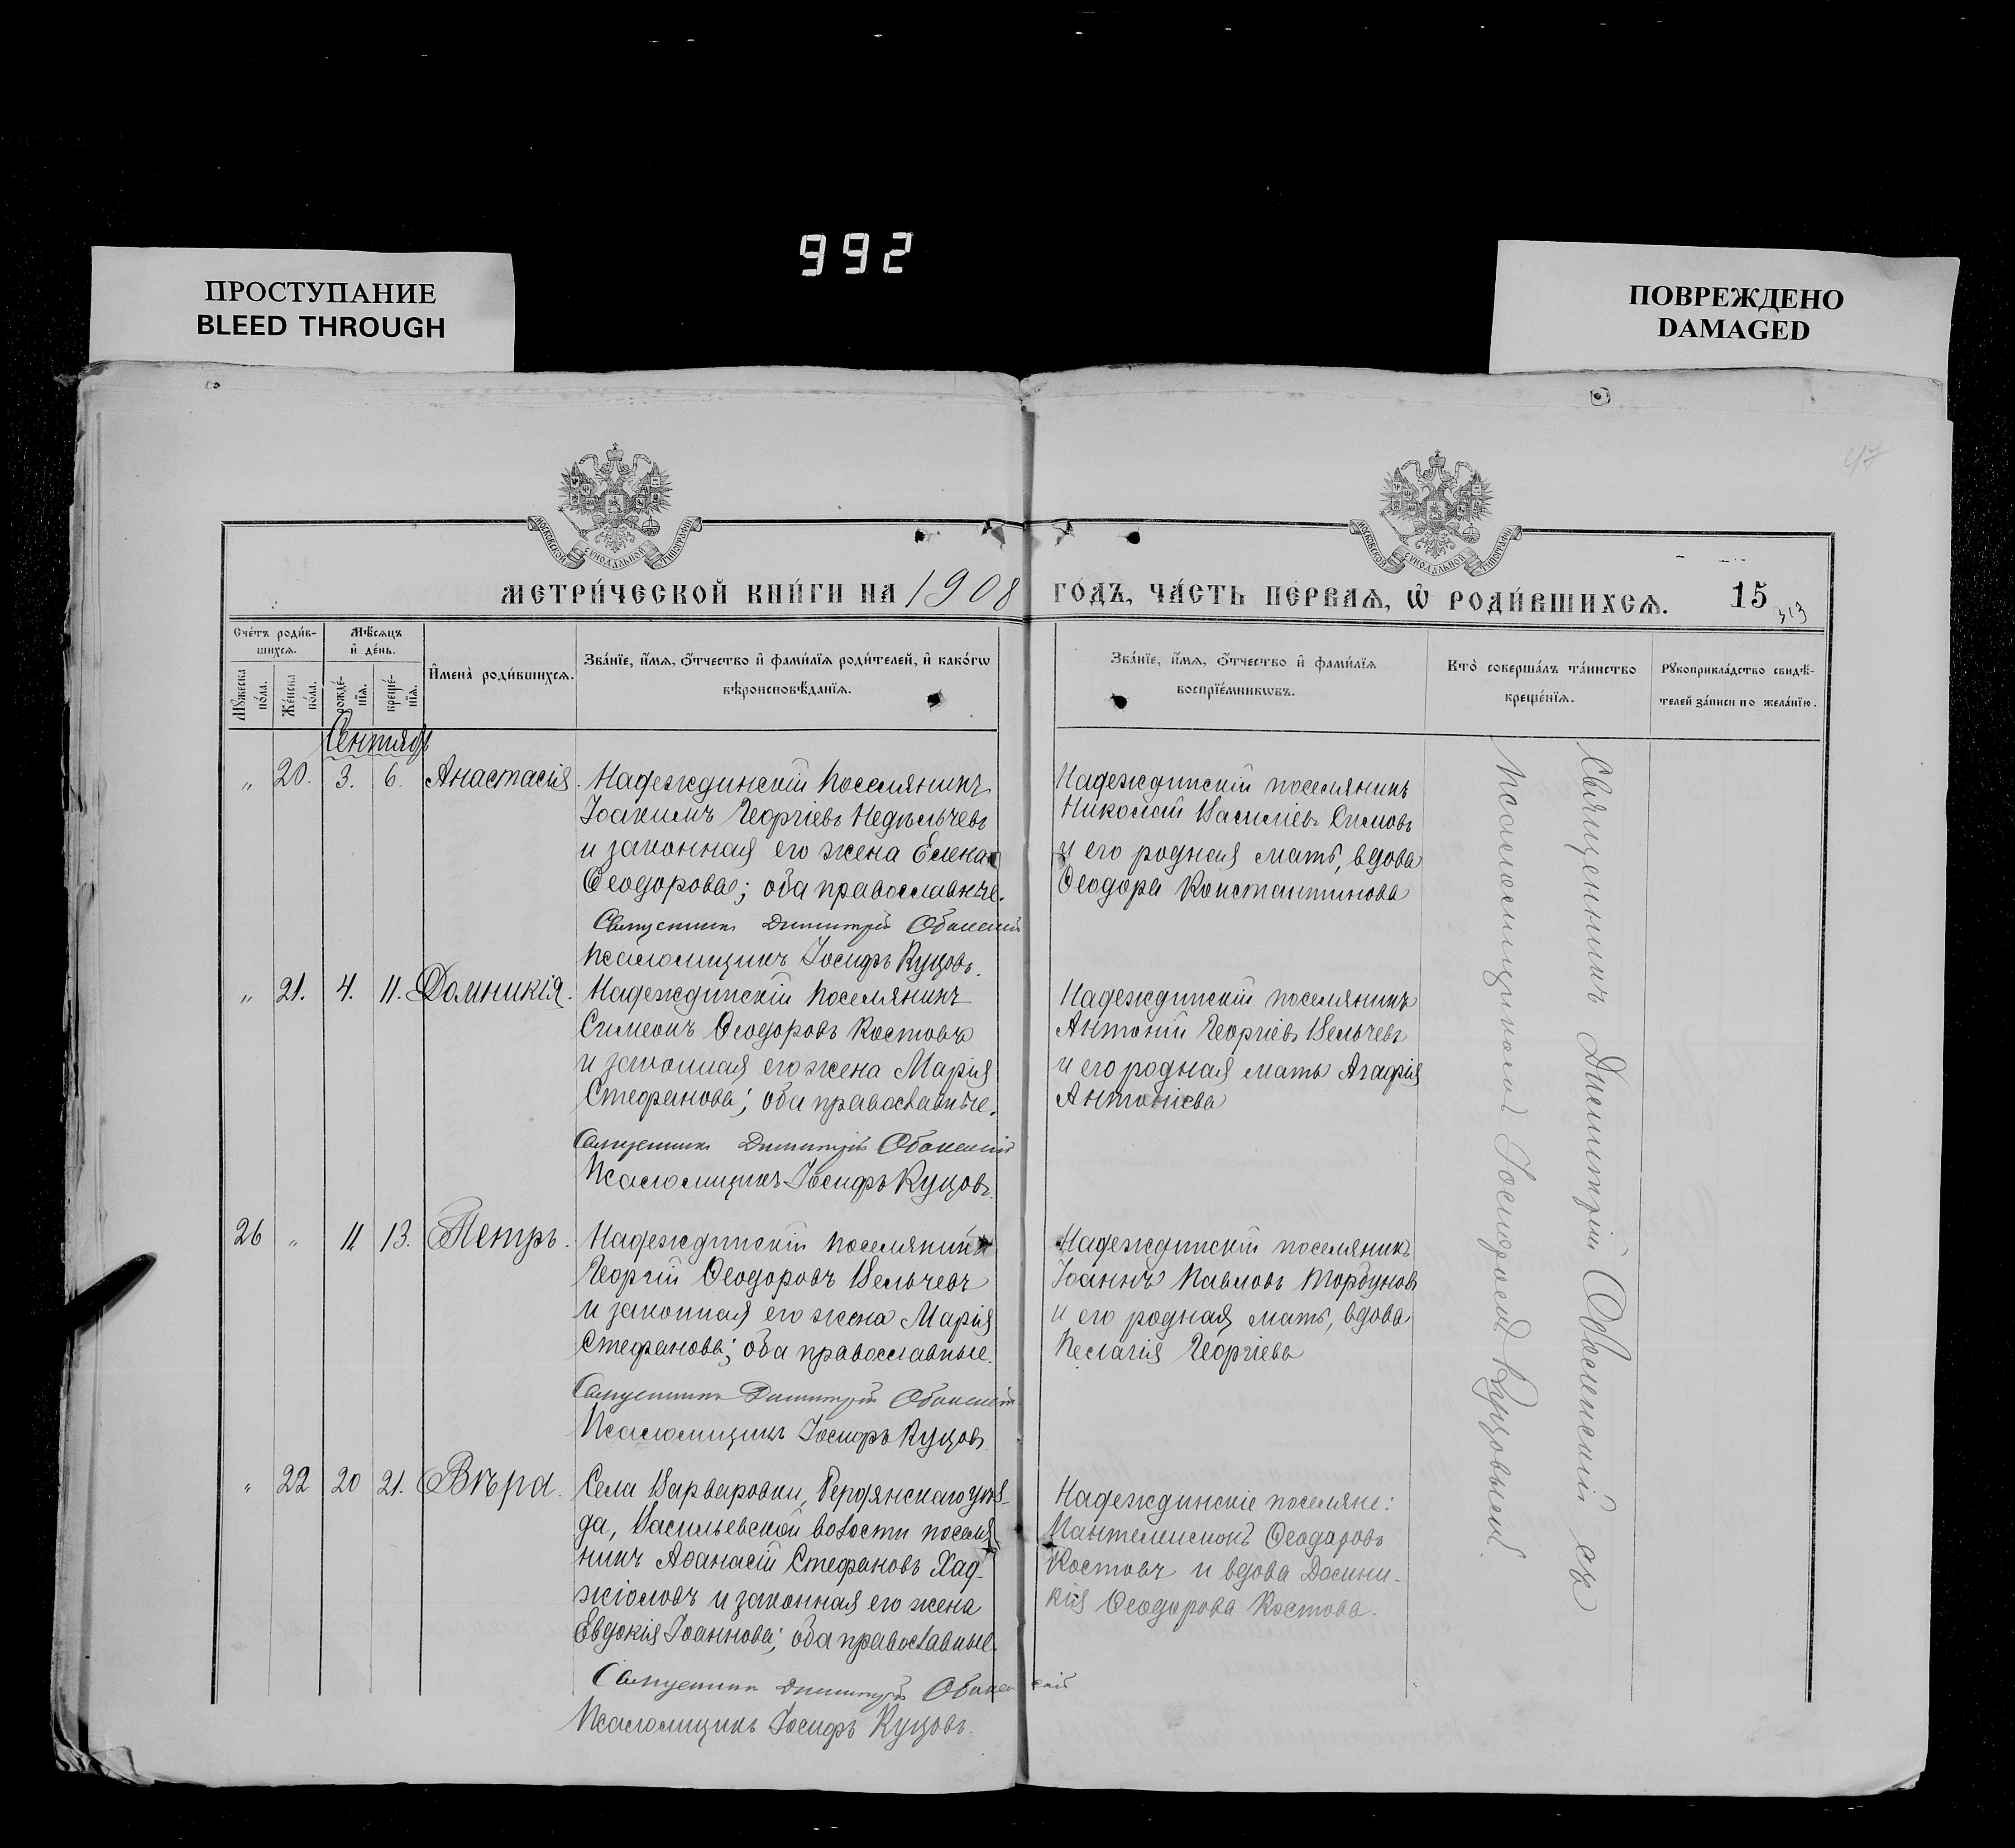 992
ПРОСТУПАНИЕ
BLEED THROUGH
ПОВРЕЖДЕНО
DAMAGED
47
МОСКОВСКОЙ СѴНОДАЛЬНОЙ ТИПОГРАФІИ
МОСКОВСКОЙ СѴНОДАЛЬНОЙ ТИПОГРАФІИ
МЕТРИ́ЧЕСКОЙ КНИ́ГИ НА 1908 ГО́ДЪ, ЧА́СТЬ ПЕ́РВАЯ, Ѽ РОДИ́ВШИХСѦ. 15
313
Сче́тъ роди́в-
шихсѧ.
Мꙋ́жеска
по́ла.
Же́нска
по́ла.
Мѣ́сѧцъ
и҆ де́нь.
рожде́-
нїѧ.
креще́-
нїѧ.
И҆мена̀ роди́вшихсѧ.
Зва́нїе, и҆́мѧ, ѻ҆́тчество и҆ фами́лїѧ роди́телей, и҆ како́гѡ
вѣроисповѣ́данїѧ.
Зва́нїе, и҆́мѧ, ѻ҆́тчество и҆ фами́лїѧ
воспрїе́мникѡвъ.
Кто̀ соверша́лъ та́инство
креще́нїѧ.
Рꙋкоприкла́дство свидѣ́-
телей за́писи по жела́нїю.
Сентябрь
" 20. 3. 6. Анастасія. Надеждинскій поселянинъ
Іоакимъ Георгіевъ Недѣльчевъ
и законная его жена Елена
Ѳеодорова; оба православные.
Священникъ Димитрій
Псаломщикъ Іосифъ Куцовъ.
Надеждинскій поселянинъ
Николай Василіевъ Симовъ
и его родная мать, вдова
Ѳеодора Константинова
" 21. 4. 11. Домникія. Надеждинскій поселянинъ
Симеонъ Ѳеодоровъ Костовъ
и законная его жена Марія
Стефанова; оба православные.
Священникъ Димитрій
Псаломщикъ Іосифъ Куцовъ.
Надеждинскій поселянинъ
Антоній Георгіевъ Вельчевъ
и его родная мать Агафія
Антоніева
26 " 11. 13. Петръ. Надеждинскій поселянинъ
Георгій Ѳеодоровъ Вельчевъ
и законная его жена Марія
Стефанова; оба православные.
Священникъ Димитрій
Псаломщикъ Іосифъ Куцовъ.
Надеждинскій поселянинъ
Іоаннъ Павловъ Торбуновъ
и его родная мать, вдова
Пелагія Георгіева
" 22 20 21. Вѣра. Села Варваровки, Бердянскаго уѣз-
да, Васильевской волости поселя
нинъ Аѳанасій Стефановъ Хад-
жіоловъ и законная его жена
Евдокія Іоаннова; оба православные.
Священникъ Димитрій
Псаломщикъ Іосифъ Куцовъ.
Надеждинскіе поселяне:
Пантелеимонъ Ѳеодоровъ
Костовъ и вдова Домни-
кія Ѳеодорова Костова.
Священникъ Димитрій съ
Псаломщикомъ Іосифомъ Куцовымъ.